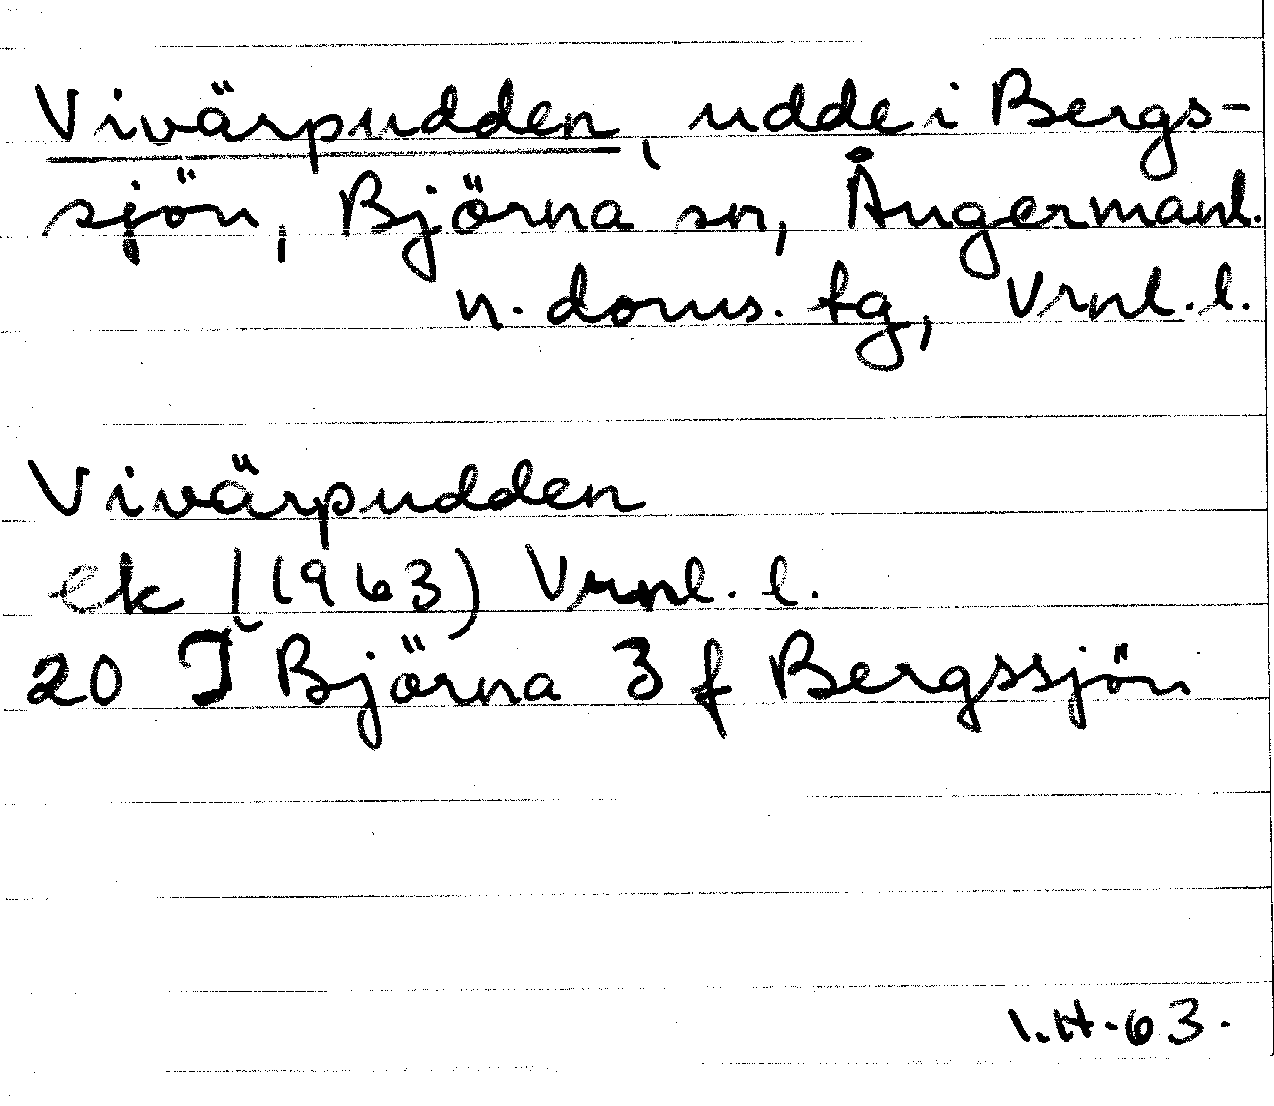 Vivärpudden, udde i Bergs-
sjön, Björna sn, Ångermanl.
n. doms. tg, Vrnl. l.
Vivärpudden
ek (1963) Vrnl. l.
20 I Björna 3 f Bergssjön
I.H-63.